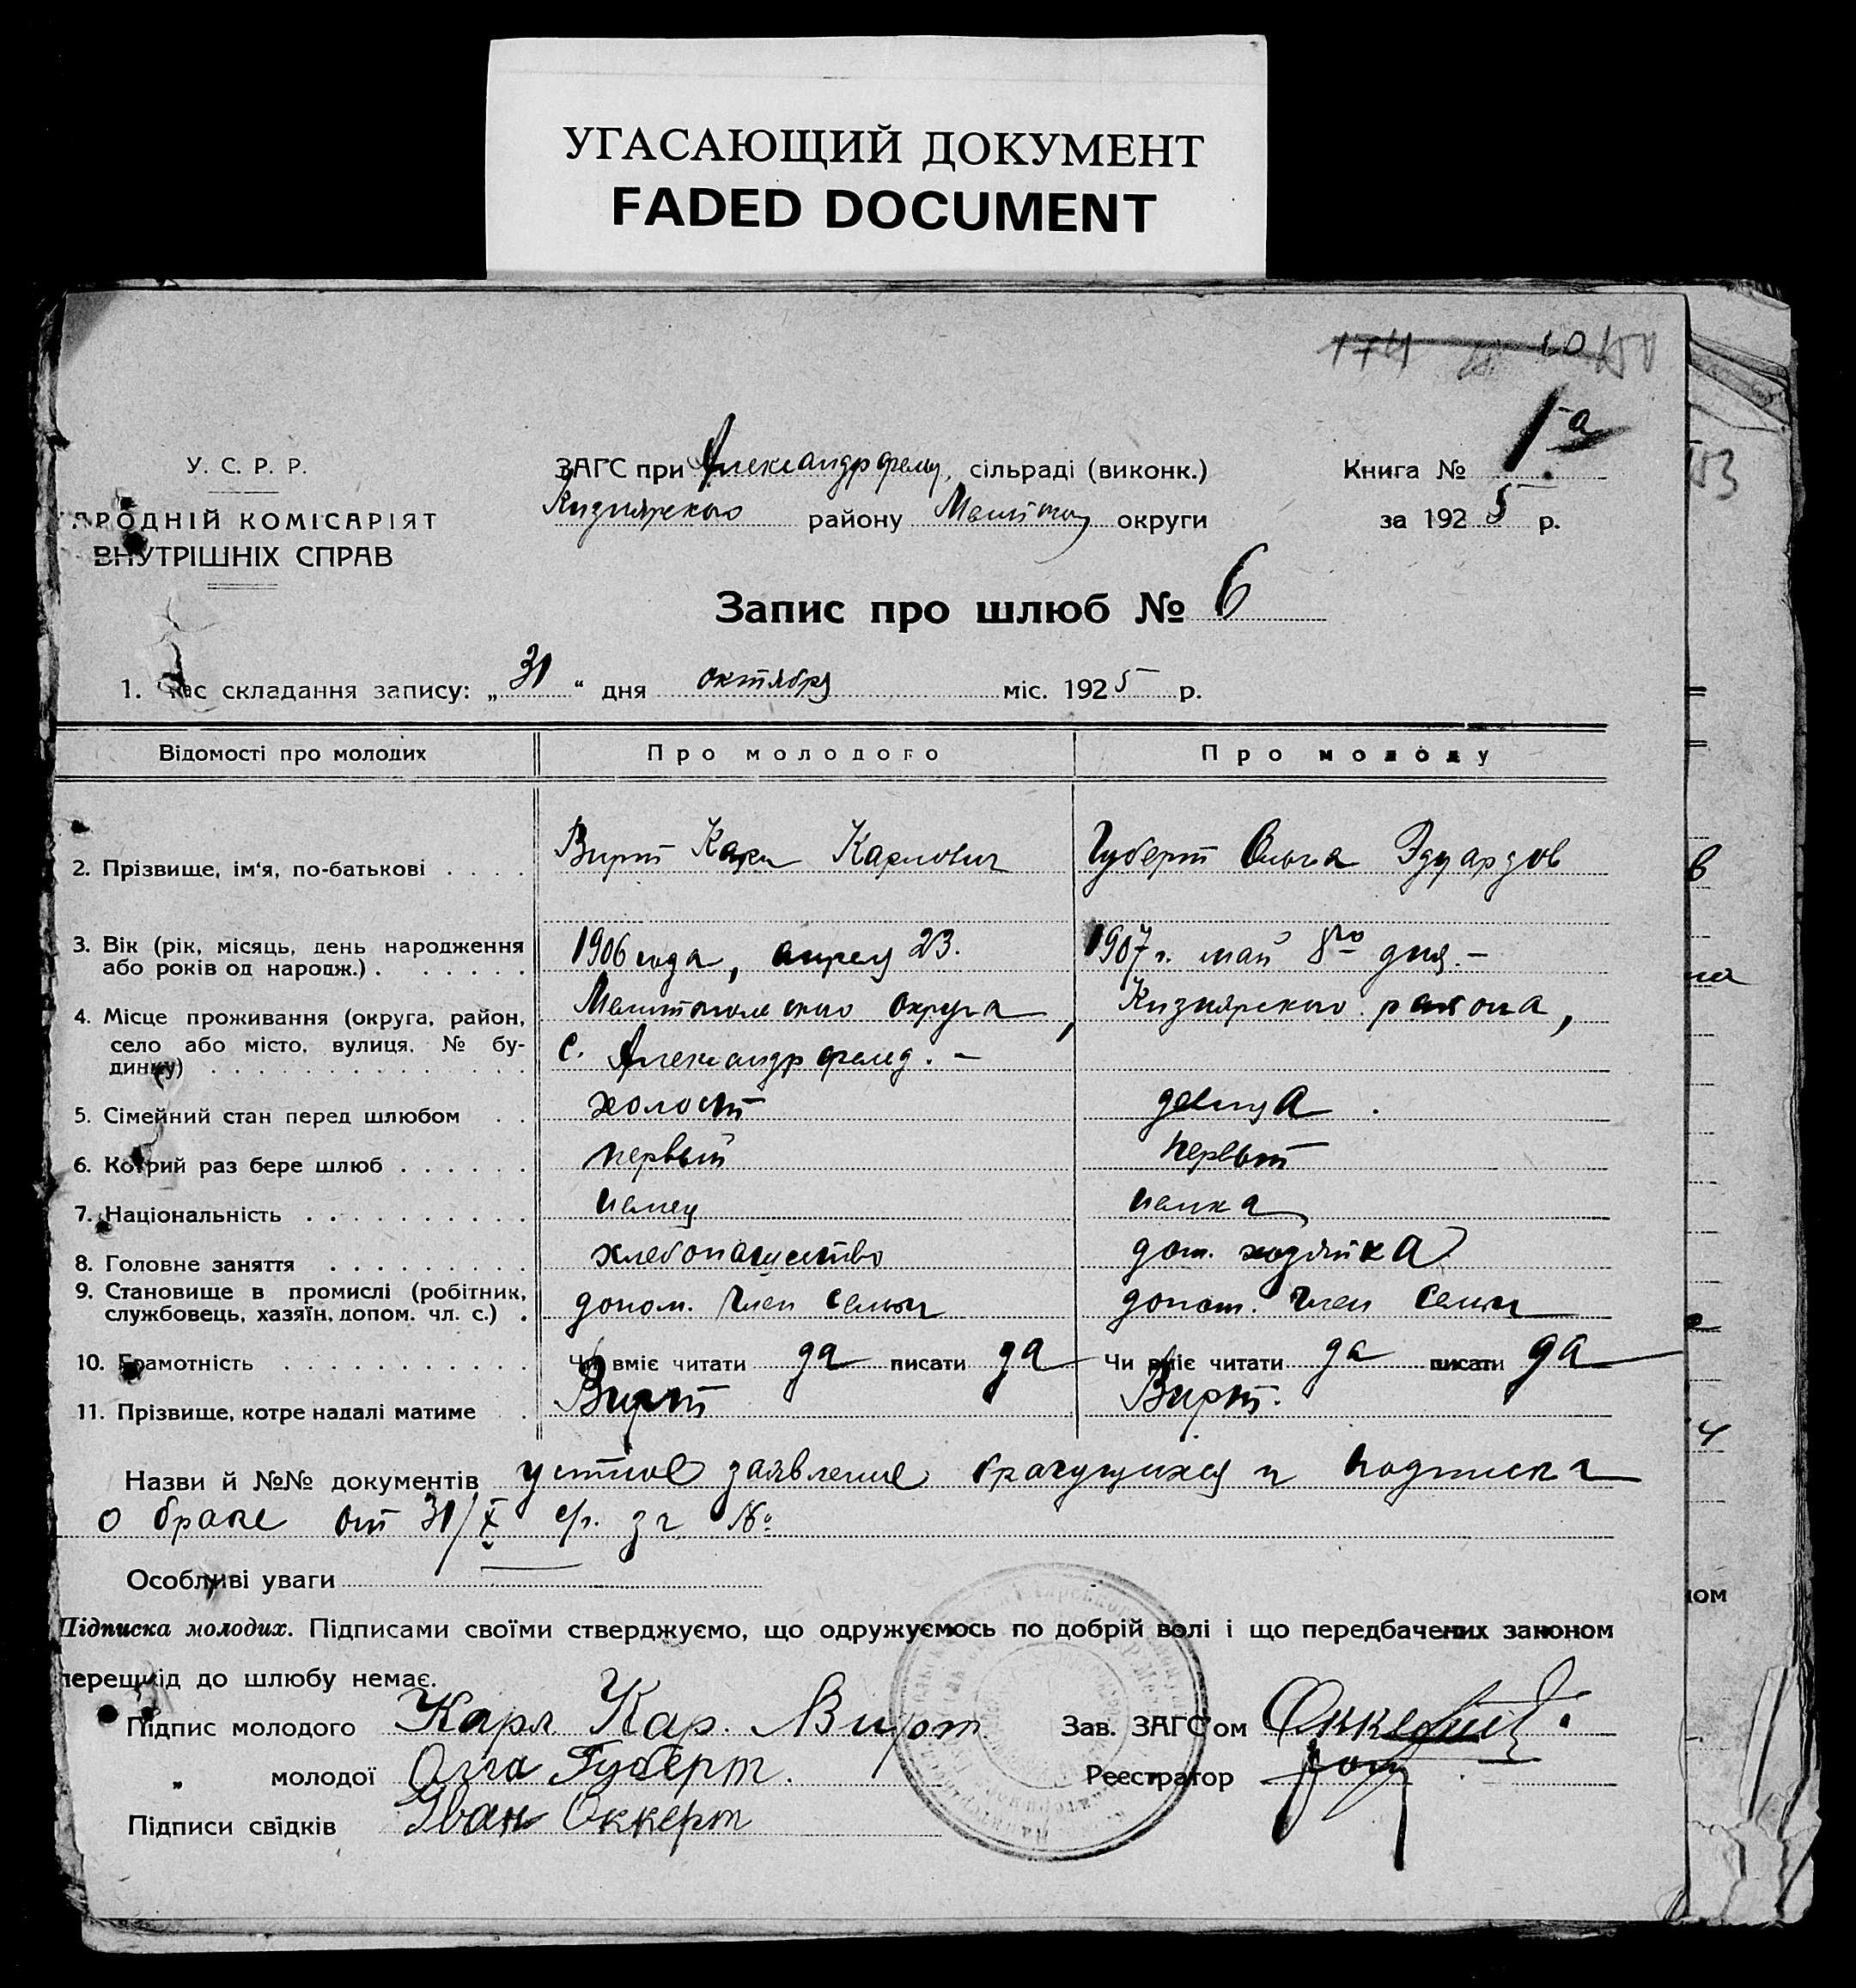 УГАСАЮЩИЙ ДОКУМЕНТ
FADED DOCUMENT
174
1а
У. С. Р. Р.
ЗАГС при Александрфельд. сільраді (виконк.)
Книга №
АРОДНІЙ КОМІСАРІЯТ
Кизиярского району Мелітоп округи
за 1925 р.
ВНУТРІШНІХ СПРАВ
Запис про шлюб № 6
1. Час складання запису: „31“ дня октября міс. 1925 р.
Відомості про молодих
Про молодого
Про молоду
2. Прізвище, ім'я, по-батькові
Вирт Карл Карлович
Губерт Ольга Эдуардов
3. Вік (рік, місяць, день народження
або років од народж.)
1906 года, апрель 23.
1907 г. май 8го дня. –
4. Місце проживання (округа, район,
село або місто, вулиця, № бу-
динку)
Мелитопольского округа, Кизиярского района,
с. Александрфельд. –
5. Сімейний стан перед шлюбом
холост
девица.
6. Котрий раз бере шлюб
первый
первый
7. Національність
немец
немка
8. Головне заняття
хлебопашество
дом. хозяйка
9. Становище в промислі (робітник,
службовець, хазяїн, допом. чл. с.)
допом. член семьи
допом. член семьи
10. Грамотність
Чи вміє читати да писати да
Чи вміє читати да писати да
11. Прізвище, котре надалі матиме
Вирт
Вирт.
Назви й №№ документів устное заявление брачущихся и подписка
о браке от 31/X с/г. за №
Особливі уваги
Підписка молодих. Підписами своїми стверджуємо, що одружуємось по добрій волі і що передбачених законом
перешкід до шлюбу немає.
Підпис молодого Карл Кар. Вирт
Зав. ЗАГС'ом
„ молодої Олга Губерт.
Реестратор
Підписи свідків Иван Оккерт